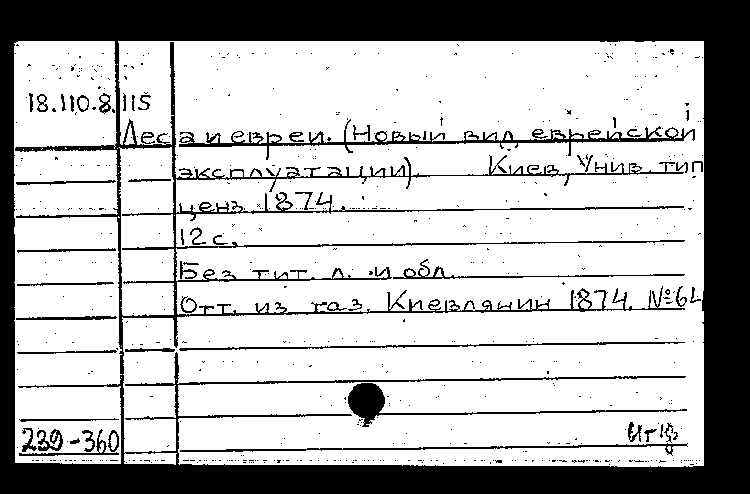 18.110.8.115
Леса и евреи. (Новый вид еврейской
эксплуатации). Киев, Унив. тип
ценз. 1874.
12 с.
Без тит. л. и обл.
Отт. из газ. Киевлянин 1874. № 64
239-360